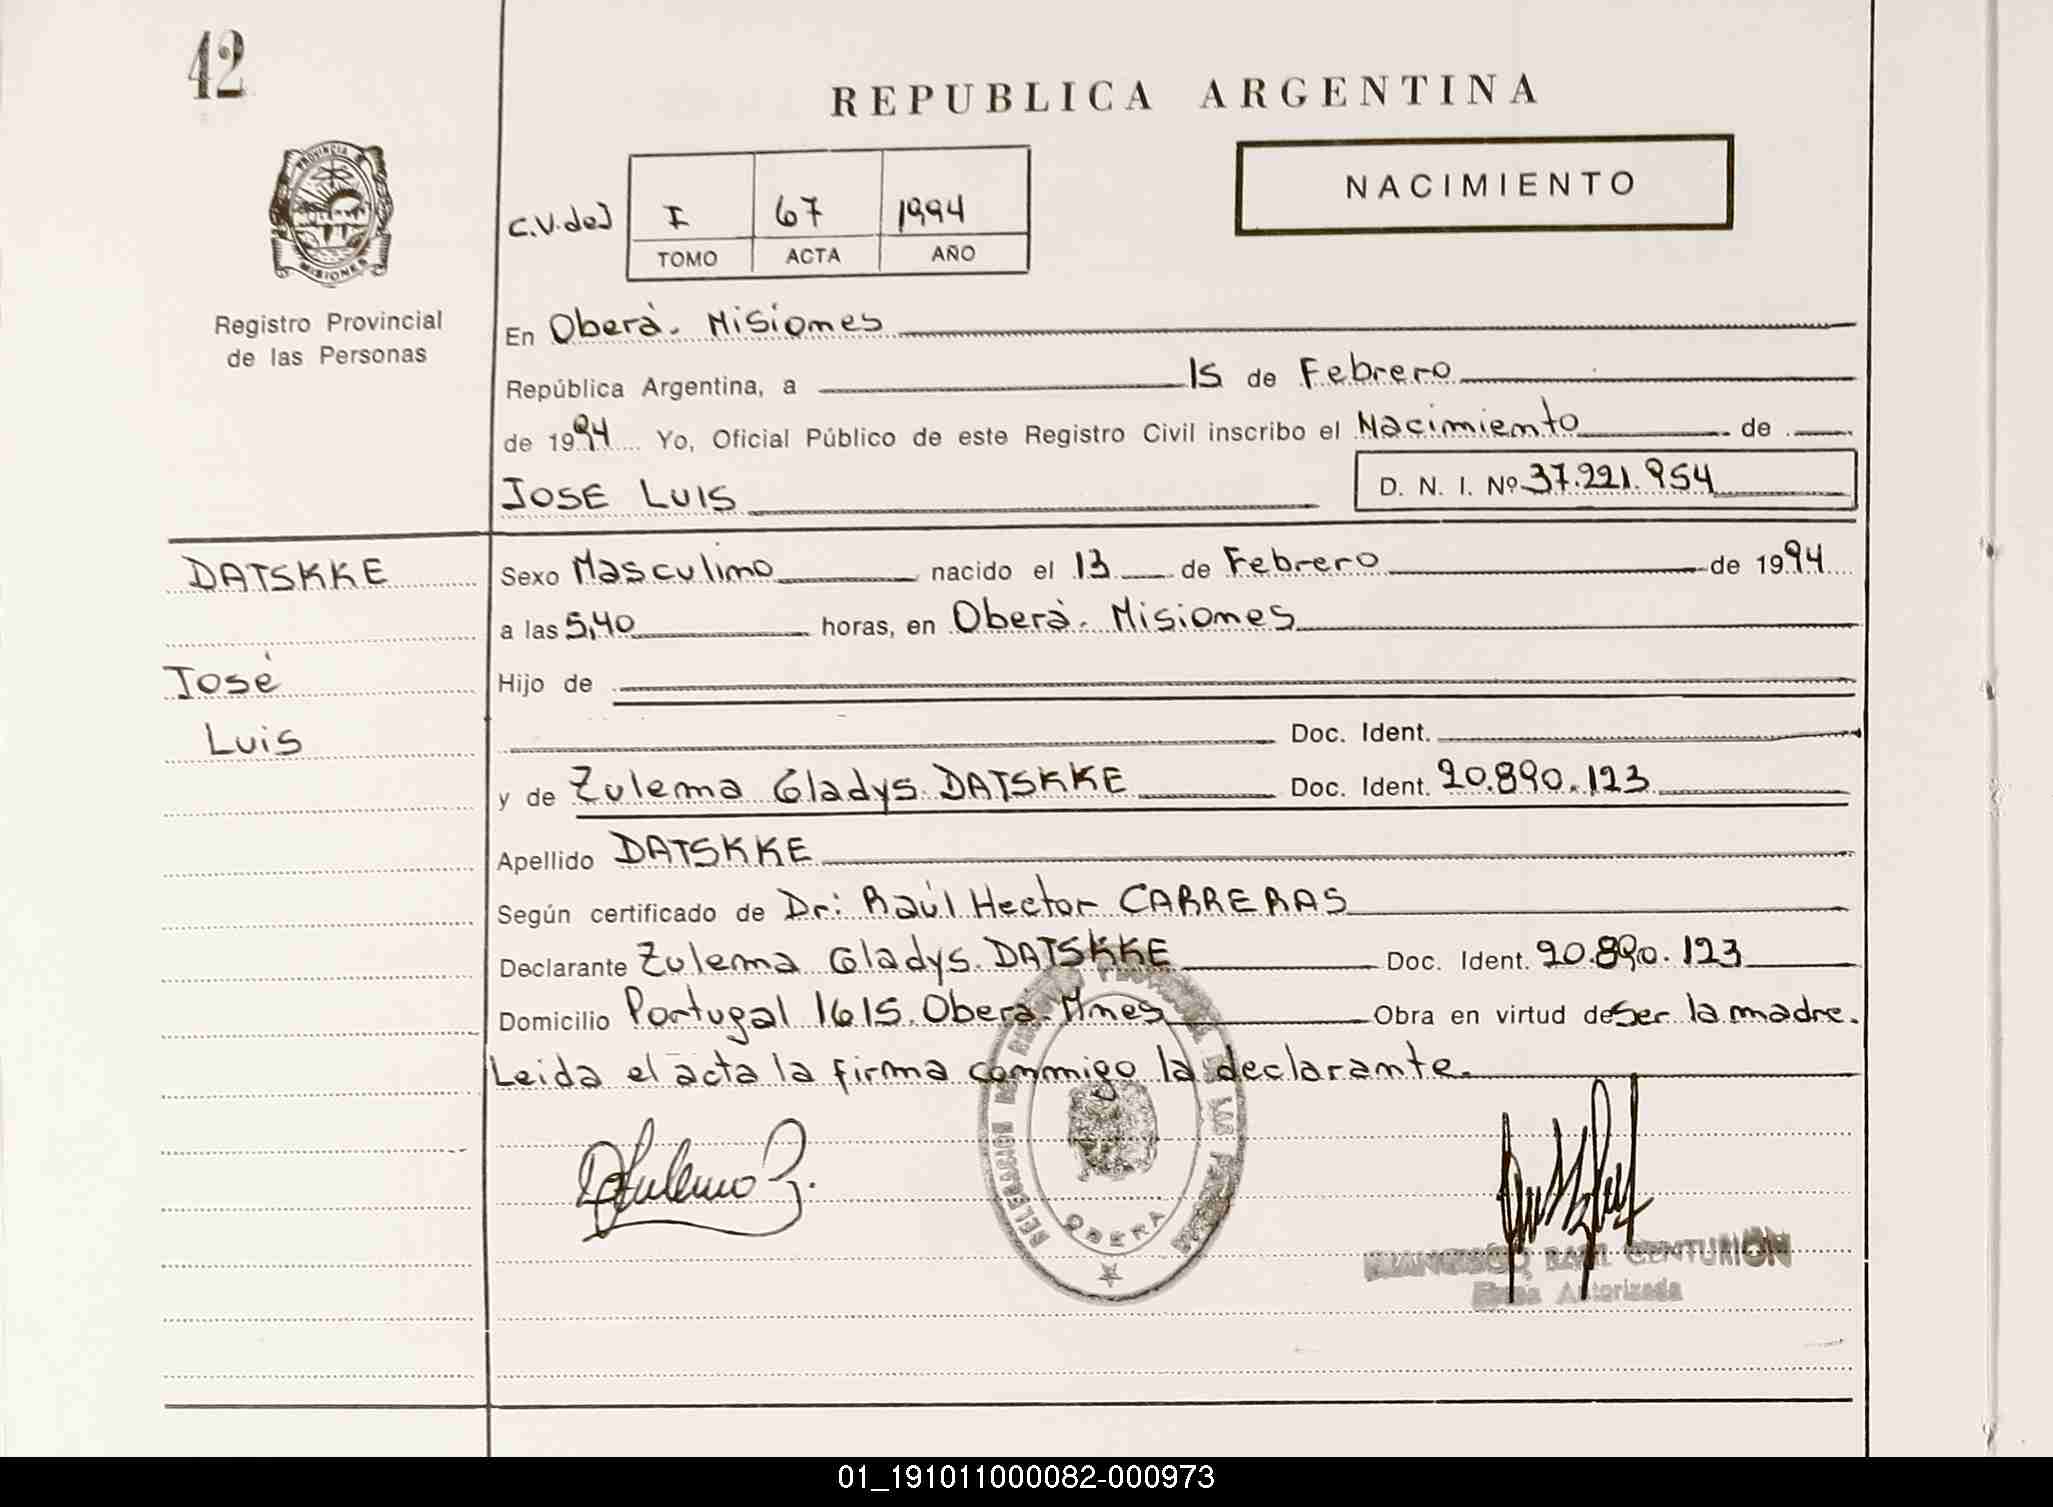 42
REPUBLICA ARGENTINA
PROVINCIA DE
MISIONES
NACIMIENTO
C.V.de) I 67 1994
TOMO ACTA AÑO
Registro Provincial
de las Personas
En Oberà. Misiones
República Argentina, a 15 de Febrero
de 1994 Yo, Oficial Público de este Registro Civil inscribo el Nacimiento de
JOSE LUIS D. N. I. Nº 37.221.954
DATSKKE Sexo Masculino nacido el 13 de Febrero de 1994
a las 5,40 horas, en Oberà. Misiones
José Hijo de
Luis Doc. Ident.
y de Zulema Gladys DATSKKE Doc. Ident. 20.890.123
Apellido DATSKKE
Según certificado de Dr: Raúl Hector CARRERAS
Declarante Zulema Gladys DATSKKE Doc. Ident. 20.890.123
Domicilio Portugal 1615. Oberà. Mnes Obra en virtud de Ser la madre.
Leida el acta la firma conmigo la declarante.
OBERA
CENTURION
Firma Autorizada
01_191011000082-000973